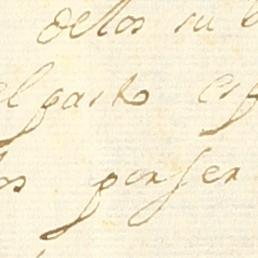 dellos su
el gasto
por ser